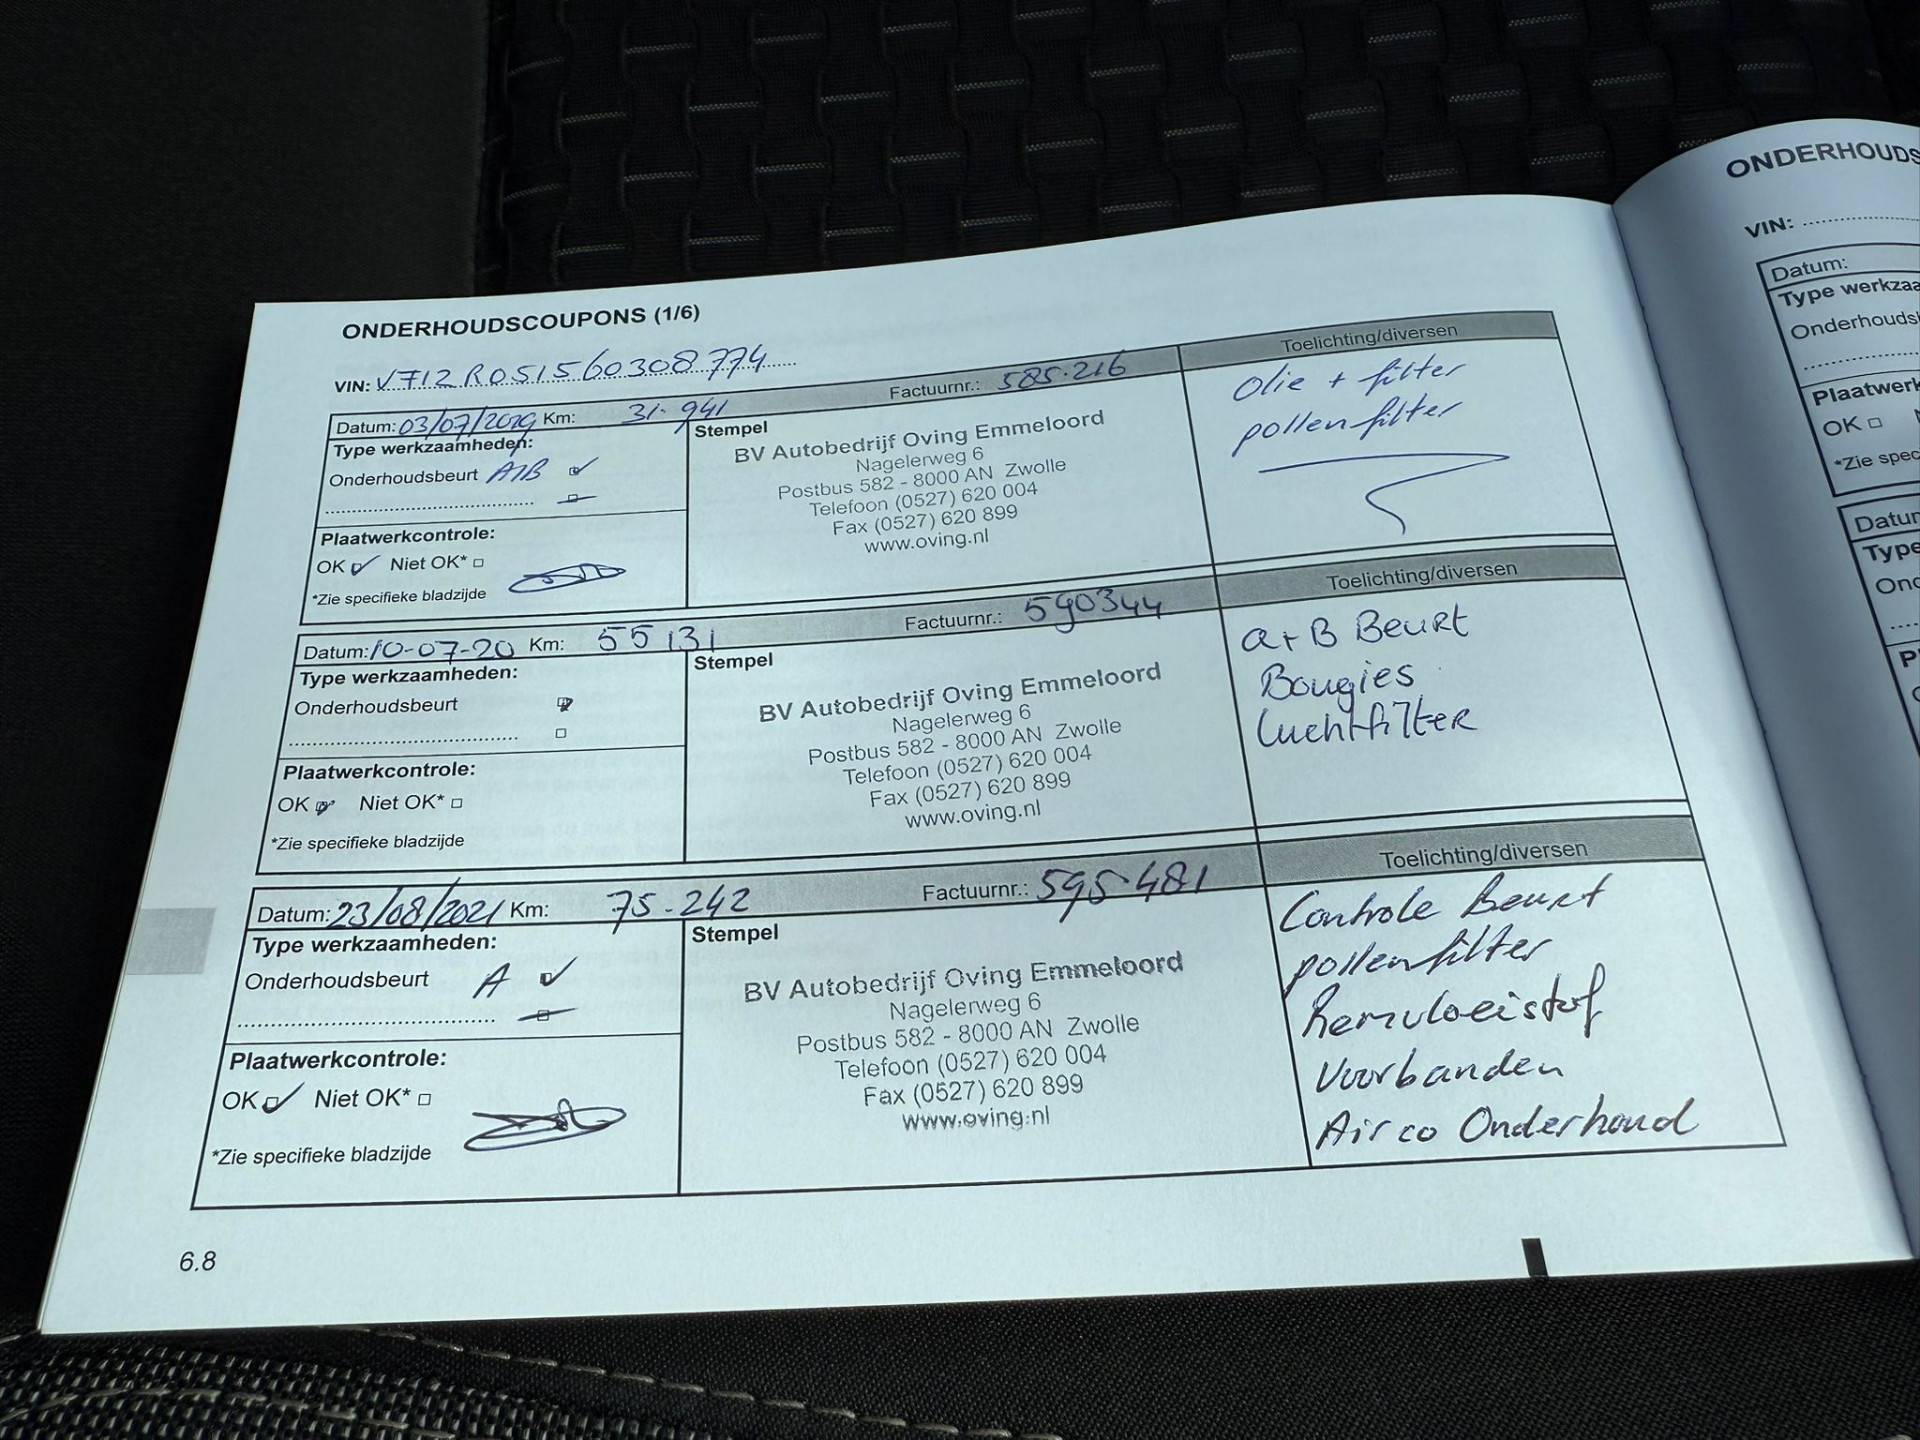 ONDERHOUDSCOUPONS (1/6)
VIN: VF12R051560308774
Datum: 03/07/2019 Km: 31.941 Factuurnr.: 585.216 Toelichting/diversen
Type werkzaamheden:
Onderhoudsbeurt A+B
Stempel
BV Autobedrijf Oving Emmeloord
Nagelerweg 6
Postbus 582 - 8000 AN Zwolle
Telefoon (0527) 620 004
Fax (0527) 620 899
www.oving.nl
Plaatwerkcontrole:
OK Niet OK*
*Zie specifieke bladzijde
Olie + filter
pollenfilter
Datum: 10-07-20 Km: 55131 Factuurnr.: 590344 Toelichting/diversen
Type werkzaamheden:
Onderhoudsbeurt
Stempel
BV Autobedrijf Oving Emmeloord
Nagelerweg 6
Postbus 582 - 8000 AN Zwolle
Telefoon (0527) 620 004
Fax (0527) 620 899
www.oving.nl
Plaatwerkcontrole:
OK Niet OK*
*Zie specifieke bladzijde
a+B Beurt
Bougies
Luchtfilter
Datum: 23/08/2021 Km: 75.242 Factuurnr.: 595.481 Toelichting/diversen
Type werkzaamheden:
Onderhoudsbeurt A
Stempel
BV Autobedrijf Oving Emmeloord
Nagelerweg 6
Postbus 582 - 8000 AN Zwolle
Telefoon (0527) 620 004
Fax (0527) 620 899
www.oving.nl
Plaatwerkcontrole:
OK Niet OK*
*Zie specifieke bladzijde
Controle Beurt
pollenfilter
Remvloeistof
Voorbanden
Airco Onderhoud
6.8
ONDERHOUDS
VIN:
Datum:
Type werkzaa
Onderhouds
Plaatwerk
OK
*Zie spec
Datum
Type